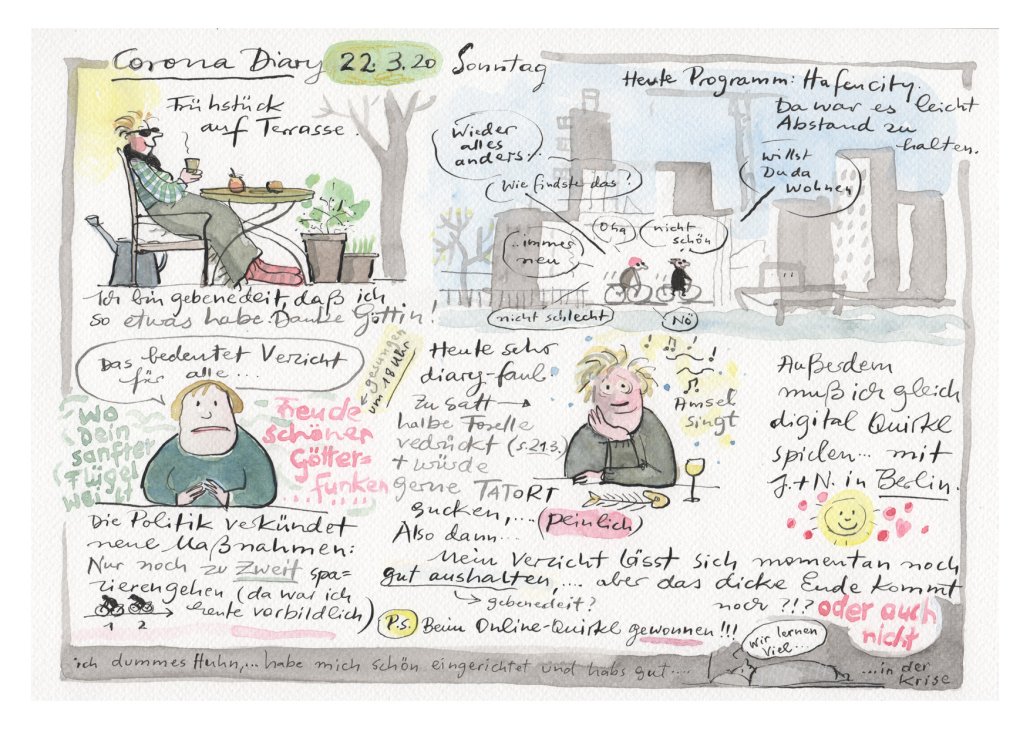 Corona Diary 22.3.20 Sonntag
Frühstück
auf Terrasse.
Ich bin gebenedeit, daß ich
so etwas habe. Danke Göttin!
Heute Programm: Hafencity.
Da war es leicht
Abstand zu
halten.
Wieder
alles
anders...
Wie findste das?
willst
Du da
wohnen
Oha
nicht
schön
..immer
neu
nicht schlecht
Nö
Das bedeutet Verzicht
für alle....
gesungen
um 18 Uhr
Wo
Dein
sanfter
Flügel
weilt
Freude
schöner
Götter=
funken
Die Politik verkündet
neue Maßnahmen:
Nur noch zu zweit spa=
zierengehen (da war ich
heute vorbildlich)
1 2
Heute sehr
diary-faul.
Zu satt →
halbe Forelle
vedrückt (s.21.3.)
+ würde
gerne TATORT
gucken,... (peinlich)
Also dann...
Amsel
singt
Außerdem
muß ich gleich
digital Quirkl
spielen... mit
J.+N. in Berlin.
Mein Verzicht lässt sich momentan noch
gut aushalten,... aber das dicke Ende kommt
→ gebenedeit?
noch ?!? oder auch
nicht
P.S. Beim Online-Quirkl gewonnen!!!
wir lernen
viel...
ich dummes Huhn,... habe mich schön eingerichtet und habs gut.... ...in der
Krise